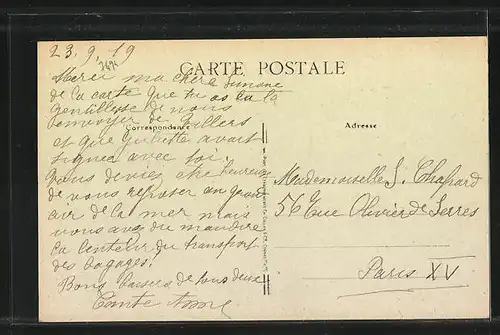 23.9.19
CARTE POSTALE
Merci ma chère Simone
de la carte que tu as eu la
gentillesse de nous
envoyer de Villers
Correspondance
Adresse
et que Juliette avait
signée avec toi.
Vous deviez être heureuses
de vous reposer en grand
air de la mer mais
vous avez du maudire
la lenteur du transport
des bagages!
Bons baisers de tous deux
Tante
Mademoiselle S. Chapard
56 Rue Olivier de Serres
Paris XV